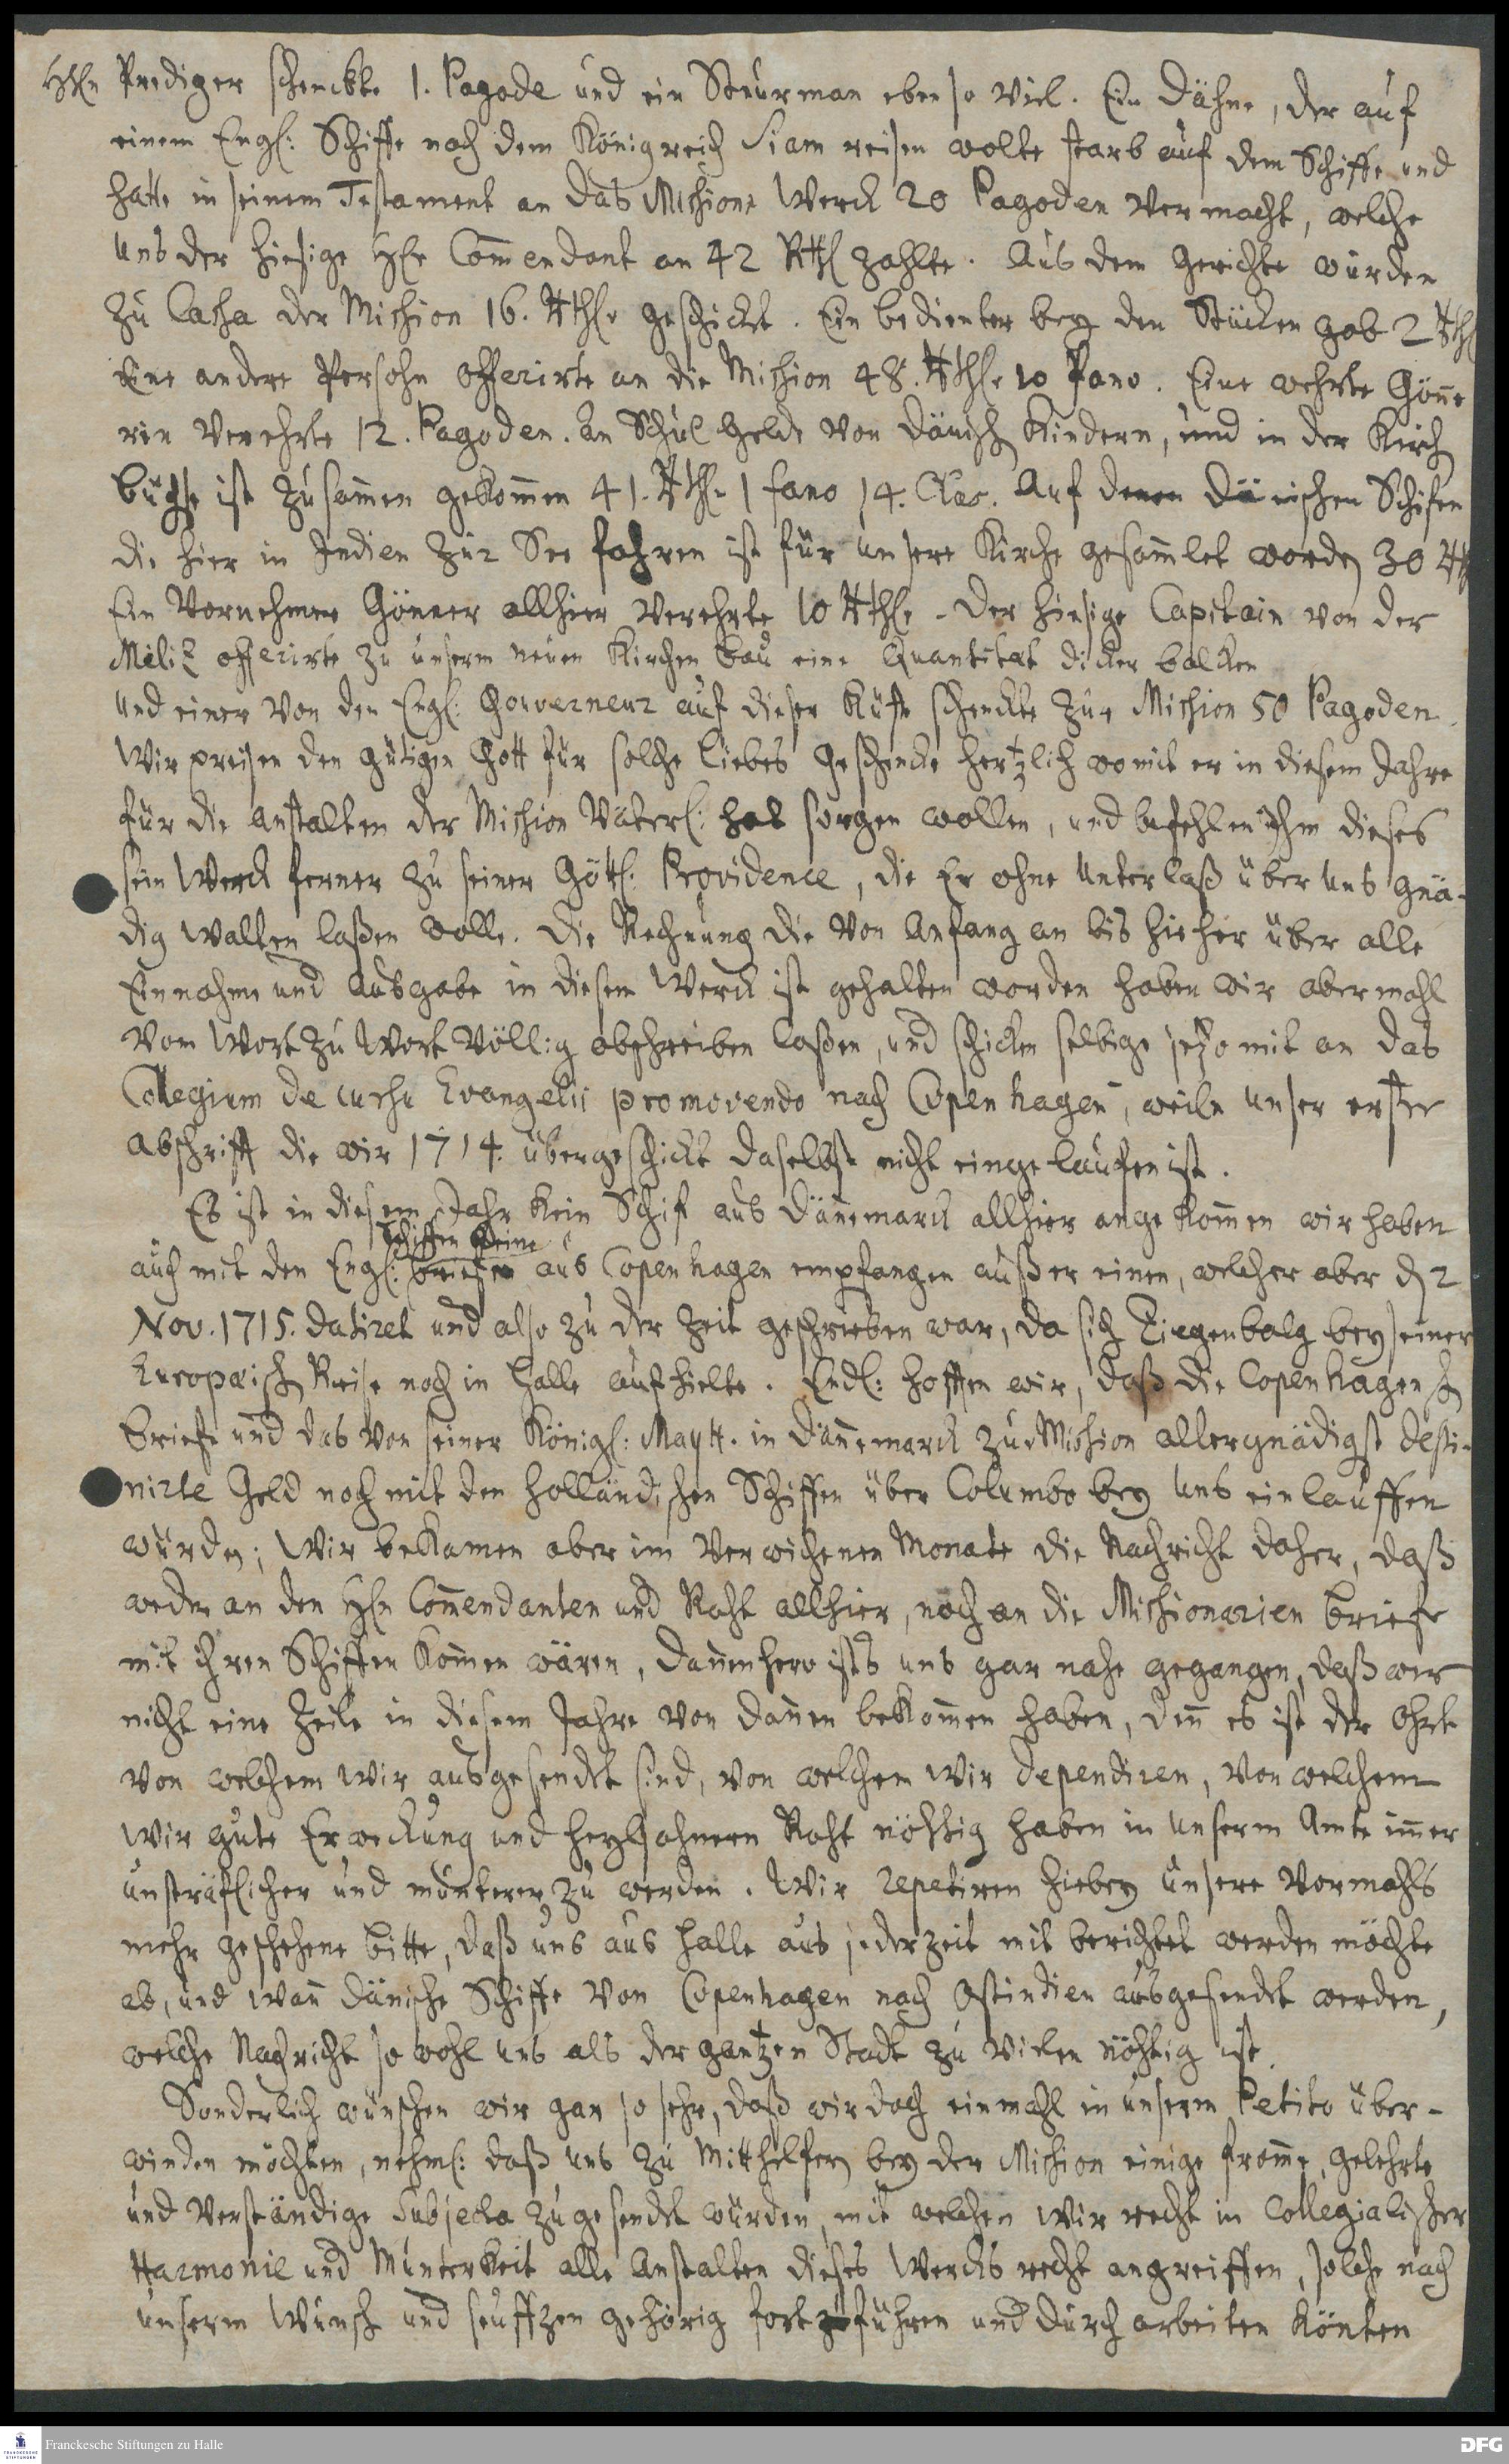 HEn Prediger schenckte 1. Pagode und ein Steurman eben so viel. Ein Dähne, der auf
einem Engl: Schiffe nach dem Königreich Siam reisen wolte starb auf dem Schiffe und
hatte in seinem Testament an das Missions Werck 20 Pagoden vermacht, welche
uns der hiesige HEr Com̄endant an 42 Rthl zahlte. Aus dem Gerichte wurden
zu Cassa der Mission 16. Rthlr geschickt. Ein bedienter bey den Stücken gab 2 Rthl
Eine andere Persohn offerirte an die Mission 48. Rthlr 10 fano. Eine wehrte Gön̄e
rin verehrte 12. Pagoden. An Schul Gelde von Dänisch Kindern, und in der Kirch
büchse ist zusam̄en gekom̄en 41. Rthlr 1 fano 14. Cas. Auf denen Dänischen Schifen
die hier in Indien zur See fahren ist für unsere Kirche gesam̄let worden 30 Rth
Ein Vornehmer Gönner allhier verehrte 10 Rthlr. Der hiesige Capitain von der
Militz offerirte zu unserm neuen Kirchen bau eine Quantitæt dicker balcken
und einer von den Engl: Gouverneur auf dieser Küste schenckte zur Mission 50 Pagoden.
Wir preisen den gütigen Gott für solche liebes Geschencke hertzlich womit er in diesem Jahre
für die Anstalten der Mission Väterl: hat sorgen wollen, und befehlen ihm dieses
sein Werck ferner zu seiner Göttl: Providence, die Er ohne Unterlaß über uns gnä-
dig walten laßen wolle. Die Rechnung die von Anfang an bis hieher über alle
Einnahme und Ausgabe in diesem Werck ist gehalten worden haben wir abermahl
vom Wort zu Wort völlig abschreiben laßen, und schicken selbige jetzo mit an das
Collegium de cursu Evangelii promovendo nach Copenhagen, weiln unser erster
Abschrifft die wir 1714. übergeschickt daselbst nicht eingelaufen ist.
Es ist in diesem Jahr kein Schif aus Dän̄emarck allhier angekom̄en wir haben
Schiffen keine
auch mit den Engl: briefen aus Copenhagen empfangen außer einen, welcher aber d 2
Nov. 1715. datiret und also zu der Zeit geschrieben war, da sich Ziegenbalg bey seiner
Europæisch Reise noch in Halle aufhielte. Endl: hoffen wir, daß die Copenhagensch
briefe und das von seiner Königl: Maytt. in Dän̄emarck zur Mission allergnädigst desti-
nirte Geld noch mit den Holländischen Schiffen über Columbo bey uns einlauffen
würden; Wir bekamen aber im verwichenen Monate die Nachricht daher, daß
weder an den HEn Com̄endanten und Raht allhier, noch an die Missionarien briefe
mit ihren Schiffen kom̄en wären, dan̄enhero ists uns gar nahe gegangen, daß wir
nicht eine Zeile in diesem Jahre von dan̄en bekom̄en haben, den̄ es ist der Ohrt
von welchem wir ausgesendet sind, von welchem wir dependiren, von welchem
wir gute Erweckung und heylsahmen Raht nöhtig haben in unserm Amte im̄er
unsträflicher und munterer zu werden. Wir repetiren hiebey unsere vormahls
mehr geschehene bitte, daß uns aus Halle aus jederzeit mit berichtet werden möchte
ob, und wan̄ Dänische Schiffe von Copenhagen nach Ostindien ausgesendet werden,
welche Nachricht so wohl uns als der gantzen Stadt zu vielen nöhtig ist.
Sonderlich wünschen wir gar so sehr, daß wir doch einmahl in unserm Petito über-
winden möchten, nehml: daß uns zu Mitthelfern bey der Mission einige from̄e, gelehrte
und verständige Subjecta zugesendet würden, mit welchen wir recht in Collegialischer
Harmonie und Munterkeit alle Anstalten dieses Wercks recht angreiffen, solche nach
unserm Wunsch und seuffzen gehörig fortzuführen und durch arbeiten könten
Franckesche Stiftungen zu Halle
DFG